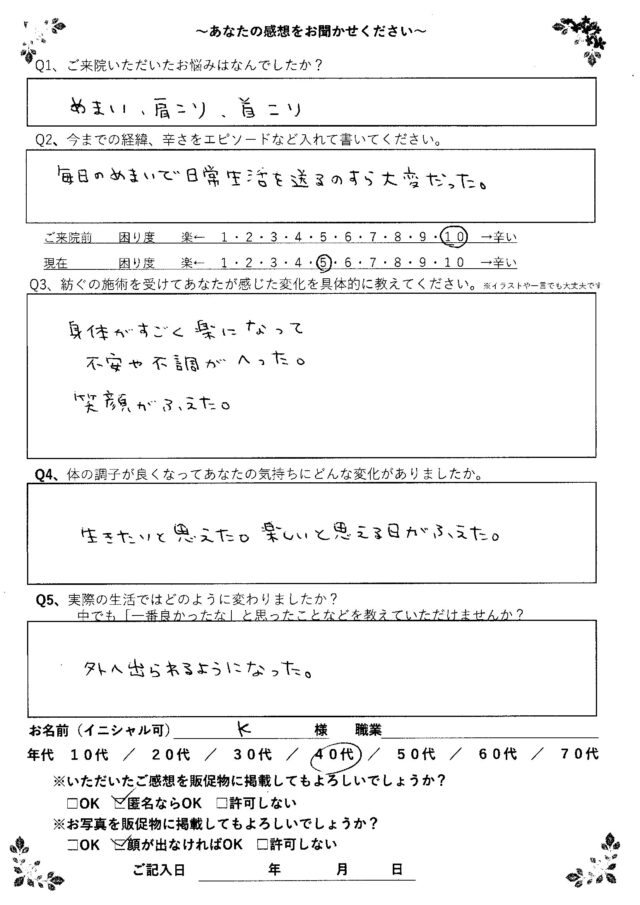 ～あなたの感想をお聞かせください～
Q1、ご来院いただいたお悩みはなんでしたか？
めまい、肩こり、首こり
Q2、今までの経緯、辛さをエピソードなど入れて書いてください。
毎日のめまいで日常生活を送るのすら大変だった。
ご来院前　困り度　楽← 1・2・3・4・5・6・7・8・9・10 →辛い
現在　困り度　楽← 1・2・3・4・5・6・7・8・9・10 →辛い
Q3、紡ぐの施術を受けてあなたが感じた変化を具体的に教えてください。※イラストや一言でも大丈夫です
身体がすごく楽になって
不安や不調がへった。
笑顔がふえた。
Q4、体の調子が良くなってあなたの気持ちにどんな変化がありましたか。
生きたいと思えた。楽しいと思える日がふえた。
Q5、実際の生活ではどのように変わりましたか？
中でも「一番良かったな」と思ったことなどを教えていただけませんか？
外へ出られるようになった。
お名前（イニシャル可） K 様　職業
年代　10代 ／ 20代 ／ 30代 ／ 40代 ／ 50代 ／ 60代 ／ 70代
※いただいたご感想を販促物に掲載してもよろしいでしょうか？
□OK ☑匿名ならOK □許可しない
※お写真を販促物に掲載してもよろしいでしょうか？
□OK ☑顔が出なければOK □許可しない
ご記入日　年　月　日